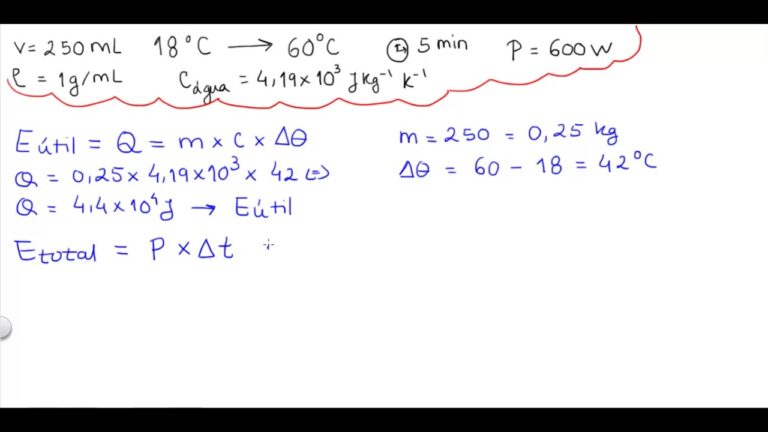 V = 250 mL 18°C → 60°C 5 min P = 600 W
ρ = 1g/mL Cágua = 4,19×10³ J kg⁻¹ K⁻¹
Eútil = Q = m × c × Δθ
Q = 0,25 × 4,19×10³ × 42 (=)
Q = 4,4×10⁴ J → Eútil
Etotal = P × Δt
m = 250 = 0,25 kg
Δθ = 60 - 18 = 42°C